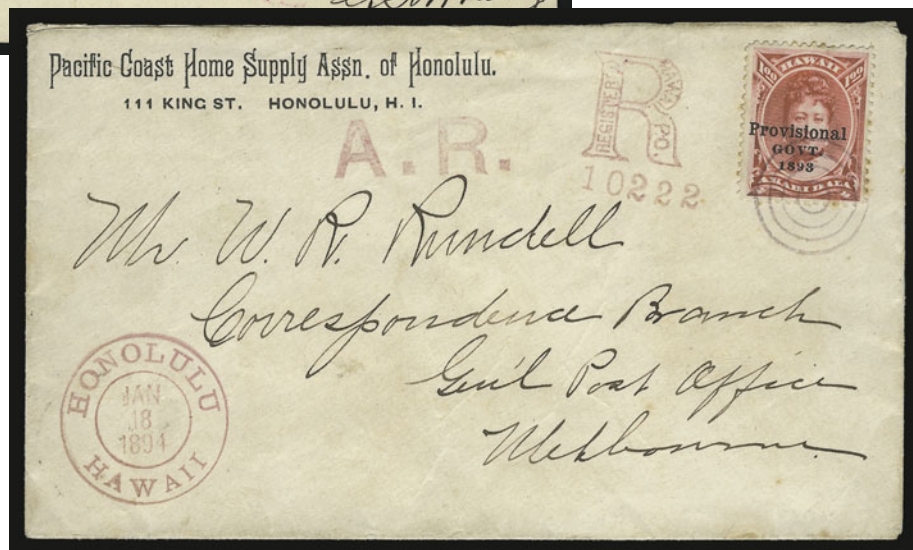 Pacific Coast Home Supply Assn. of Honolulu.
111 KING ST. HONOLULU, H. I.
A.R.
REGISTERED R HAWAII P.O.
10222
HAWAII
1.00 1.00
Provisional
GOVT.
1893
AKAHI DALA
Mr. W. R. Rundell
Correspondence Branch
Gen'l Post Office
Melbourne
HONOLULU
JAN
18
1894
HAWAII